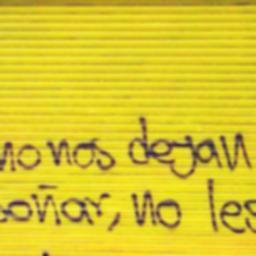 no nos dejan
soñar, no les